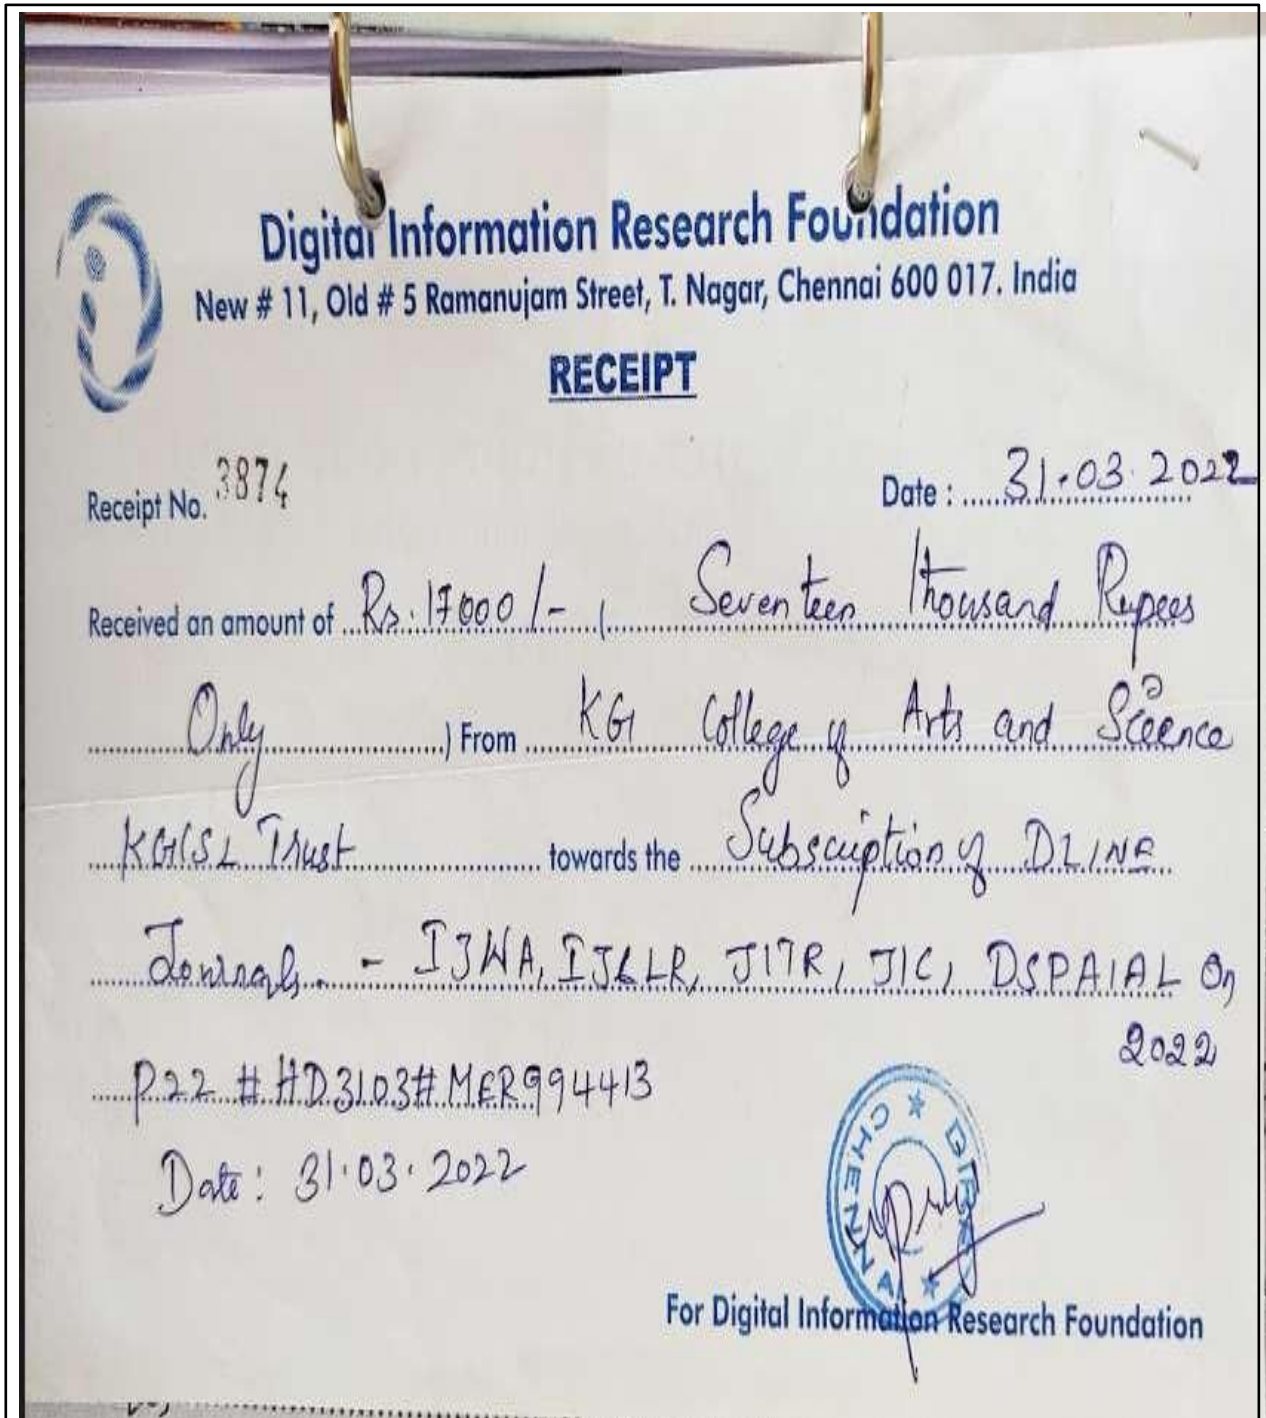 Digital Information Research Foundation
New # 11, Old # 5 Ramanujam Street, T. Nagar, Chennai 600 017. India
RECEIPT
Receipt No. 3874
Date : 31.03.2022
Received an amount of Rs. 17000/- ( Seventeen Thousand Rupees
Only ) From KG College of Arts and Science
KGISL Trust towards the Subscription of DLINE
Journals - IJWA, IJCLR, JITR, JIC, DSPAIAL On
2022
P22 # HD3103# MER994413
Date: 31.03.2022
CHENNAI ★ DIRF ★
For Digital Information Research Foundation